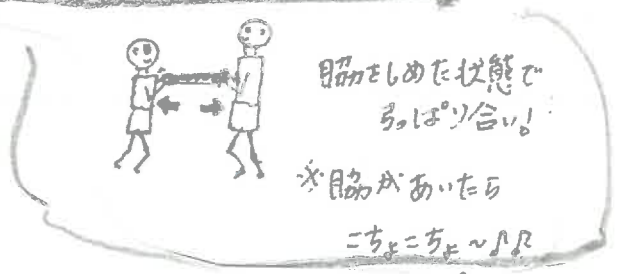 脇をしめた状態で
引っぱり合い!
※脇があいたら
こちょこちょ～♪♫